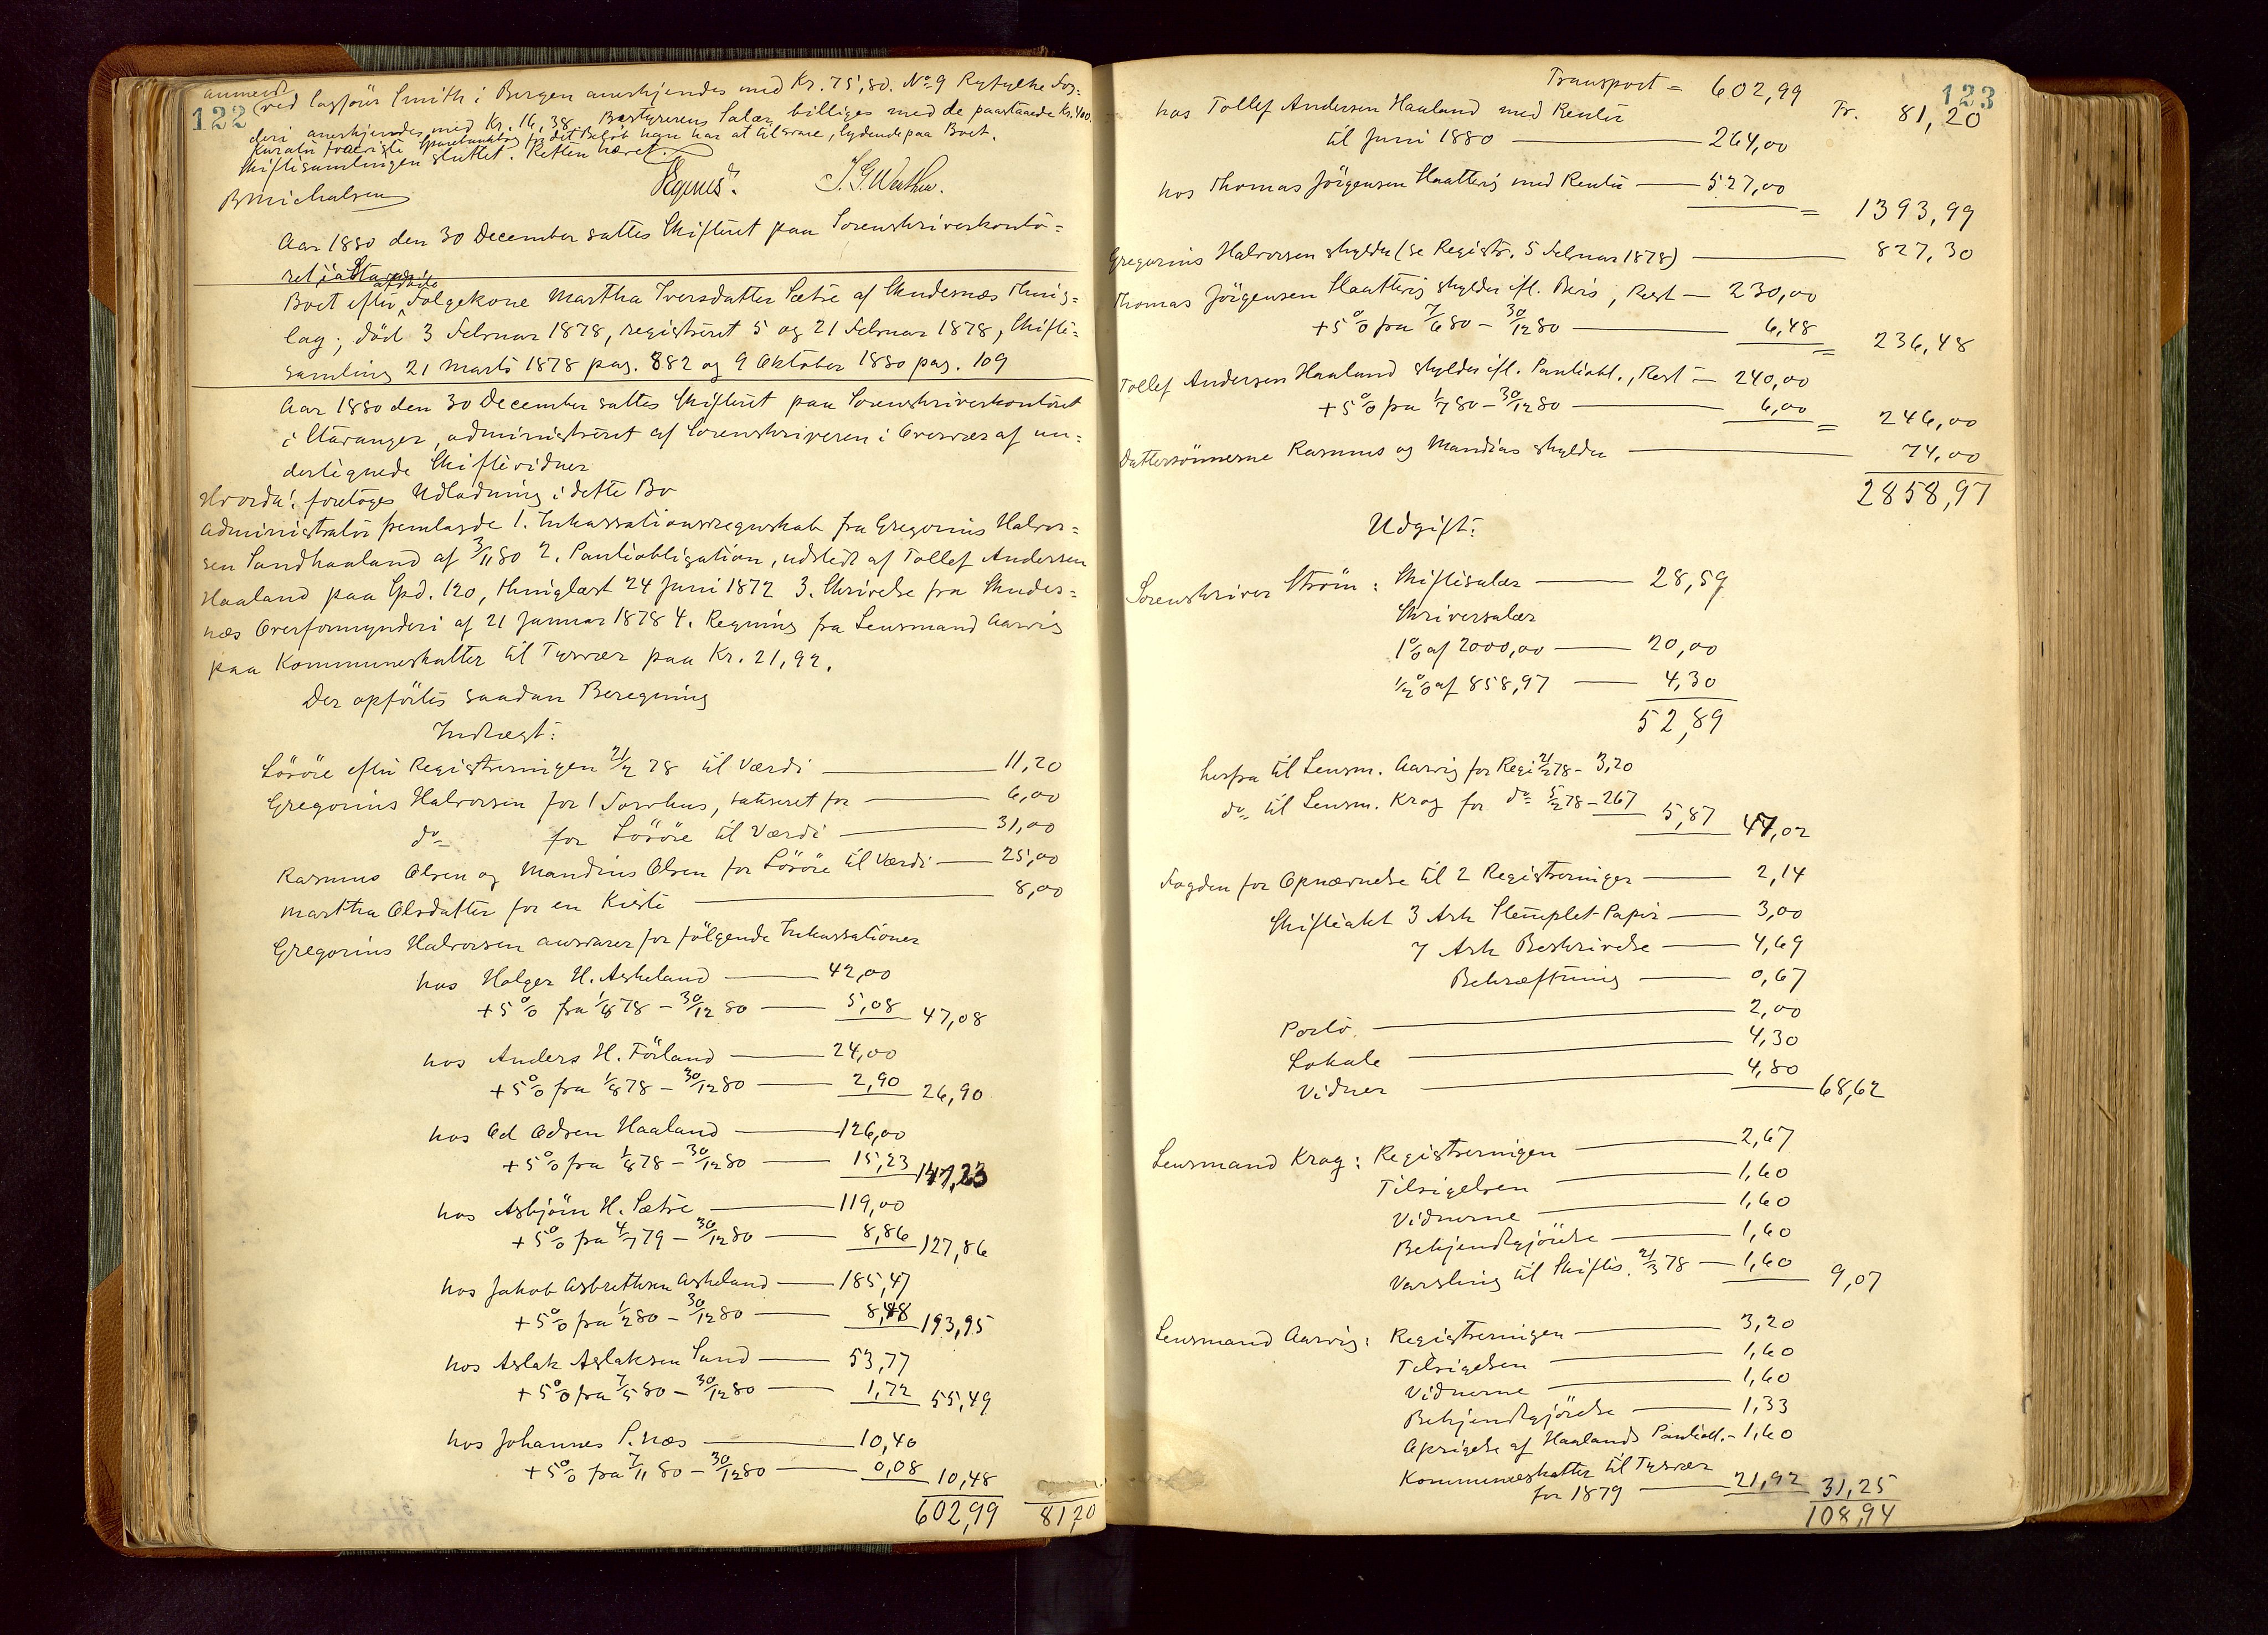 122
ved Sagfører Smith i Bergen anerkjendes med Kr. 75,80. No 9 Ryfylke Fog-
deri anerkjendes med Kr. 16,38. Bestyrerens Salær billiges med de paastaaede Kr. 400.
Kurator foreviste Sparebankbog for det Beløb han har at tilsvare, lydende paa Boet.
Skiftesamlingen sluttet. Retten hævet.
B Michalsen
Aar 1880 den 30 December sattes Skifteret paa Sorenskriverkonto-
ret i Sta
Boet efter afdøde Følgekone Martha Iversdatter Sætre af Skudesnæs Thing-
lag, død 3 Februar 1878, registreret 5 og 21 Februar 1878, Skifte-
samling 21 Marts 1878 pag. 882 og 9 Oktober 1880 pag. 109
Aar 1880 den 30 December sattes Skifteret paa Sorenskriverkontoret
i Stavanger, administreret af Sorenskriveren i Overvær af un-
dertegnede Skiftevidner
Hvorda: foretoges Udlodning i dette Bo
Administrator fremlagde 1. Inkassationsregnskab fra Gregorius Halvor-
sen Sandhaaland af 3/11 80 2. Panteobligation, udstedt af Tollef Andersen
Haaland paa Spd. 120, thinglæst 24 Juni 1872 3. Skrivelse fra Skudes-
næs Overformynderi af 21 Januar 1878 4. Regning fra Lensmand Aarvig
paa Kommuneskatter til Tysvær paa Kr. 21,92.
Der opførtes saadan Beregning
Indtægt:
Løsøre efter Registreringen 21/2 78 til Værdi — 11,20
Gregorius Halvorsen for 1 Torvhus, taxeret for — 6,00
do for Løsøre til Værdi — 31,00
Rasmus Olsen og Mandius Olsen for Løsøre til Værdi — 25,00
Martha Olsdatter for en Kiste — 8,00
Gregorius Halvorsen ansvarer for følgende Inkassationer
hos Holger H. Askeland — 42,00
+ 5% fra 1/8 78 – 30/12 80 — 5,08 47,08
hos Anders H. Førland — 24,00
+ 5% fra 1/8 78 – 30/12 80 — 2,90 26,90
hos Od Odsen Haaland — 126,00
+ 5% fra 1/8 78 – 30/12 80 — 15,23 141,23
hos Asbjørn H. Sætre — 119,00
+ 5% fra 4/7 79 – 30/12 80 — 8,86 127,86
hos Jakob Asbrethsen Askeland — 185,47
+ 5% fra 1/2 80 – 30/12 80 — 8,48 193,95
hos Aslak Aslaksen Sund — 53,77
+ 5% fra 7/5 80 – 30/12 80 — 1,72 55,49
hos Johannes P. Næs — 10,40
+ 5% fra 7/11 80 – 30/12 80 — 0,08 10,48
602,99 81,20
123
Transport = 602,99 Fr. 81,20
hos Tollef Andersen Haaland med Renter
til Juni 1880 — 264,00
hos Thomas Jørgensen Haattveig med Renter — 527,00 = 1393,99
Gregorius Halvorsen skylder (se Registr. 5 Februar 1878) — 827,30
Thomas Jørgensen Haattveig skylder ifl. Bevis, Rest — 230,00
+ 5% fra 7/6 80 – 30/12 80 — 6,48 = 236,48
Tollef Andersen Haaland skylder ifl. Panteobl., Rest — 240,00
+ 5% fra 1/7 80 – 30/12 80 — 6,00 = 246,00
Dattersønnerne Rasmus og Mandius skylder — 74,00
2858,97
Udgift:
Sorenskriver Strøm: Skiftesalær — 28,59
Skriversalær
1% af 2000,00 — 20,00
1/2% af 858,97 — 4,30
52,89
herfra til Lensm. Aarvig for Regi 21/2 78 – 3,20
do til Lensm. Krag for do 5/2 78 – 2,67 5,87 47,02
Fogden for Opnævnelse til 2 Registreringer — 2,14
Skifteakt 3 Ark Stemplet Papir — 3,00
7 Ark Beskrivelse — 4,69
Bekræftning — 0,67
Porto — 2,00
Lokale — 4,30
Vidner — 4,80 68,62
Lensmand Krag: Registreringen — 2,67
Tilsigelsen — 1,60
Vidnerne — 1,60
Bekjendtgjørelse — 1,60
Varsling til Skifts. 21/3 78 — 1,60 9,07
Lensmand Aarvig: Registreringen — 3,20
Tilsigelsen — 1,60
Vidnerne — 1,60
Bekjendtgjørelse — 1,33
Opsigelse af Haalands Panteobl. – 1,60
Kommuneskatter til Tysvær
for 1879 — 21,92 31,25
108,94